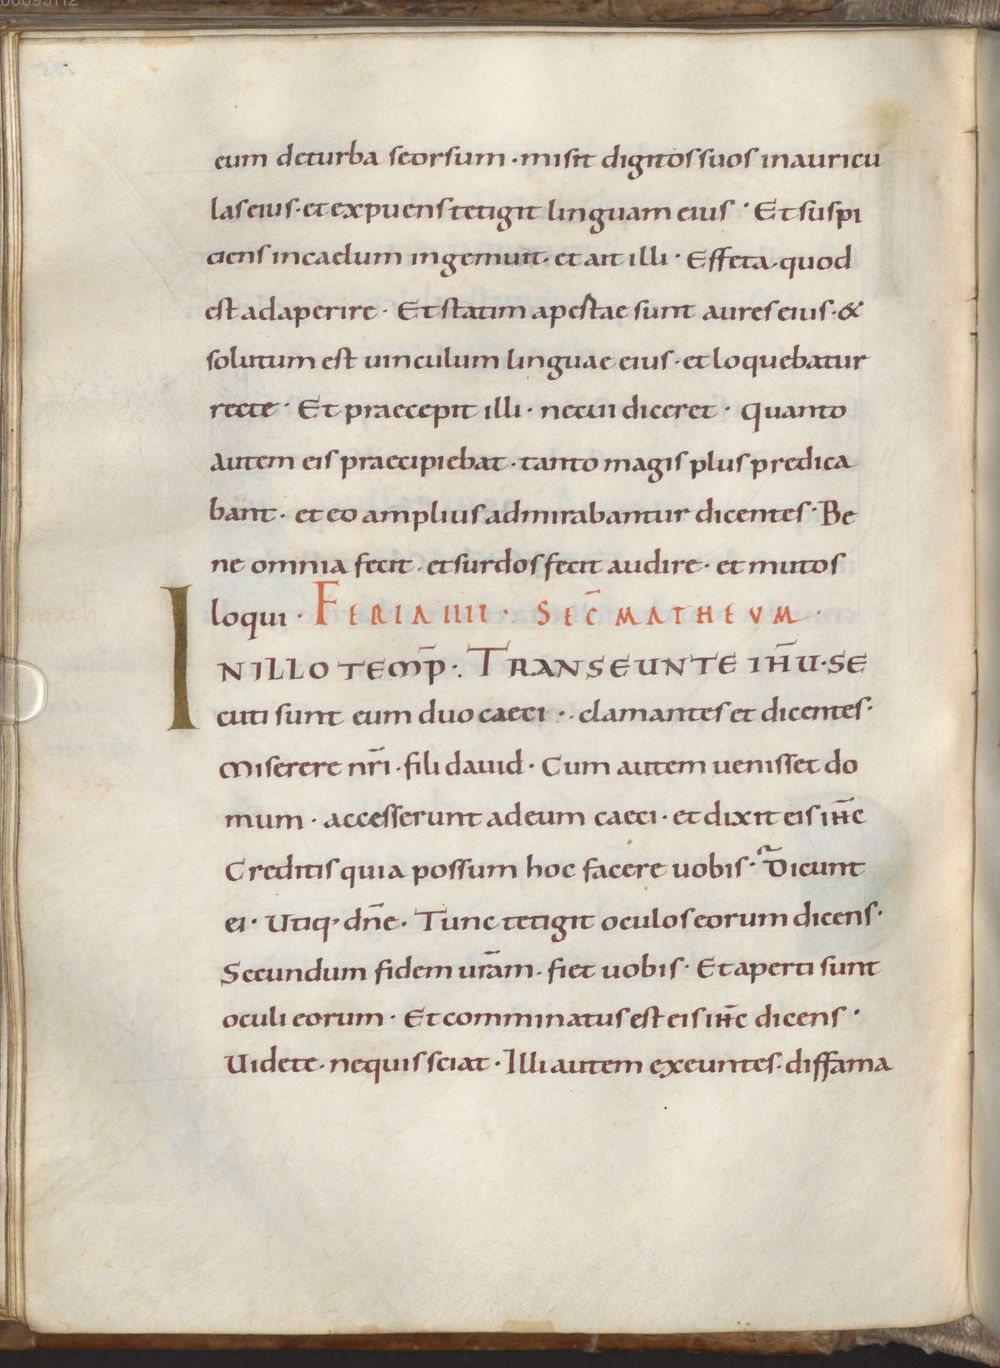 eum deturba seorsum · misit digitos suos inauricu
las eius · et expuens tetigit linguam eius · Et suspi
ciens in caelum ingemuit · et ait illi · Effeta · quod
est adaperire · Et statim apestae sunt aures eius · &
solutum est uinculum linguae eius · et loquebatur
recte · Et praecepit illi · necui diceret · Quanto
autem eis praecipiebat · tanto magis plus predica
bant · et eo amplius admirabantur dicentes · Be
ne omnia fecit · et surdos fecit audire · et mutos
loqui · FERIA IIII · SEC̄ MATHEVM ·
INILLO TEMP̄ · TRANSEUNTE IH̄U · SE
cuti sunt eum duo caeci · clamantes et dicentes ·
Miserere nr̄i · fili dauid · Cum autem uenisset do
mum · accesserunt ad eum caeci · et dixit eis ih̄c
Creditis quia possum hoc facere uobis · Dicunt
ei · Utiq· dn̄e · Tunc tetigit oculos eorum dicens ·
Secundum fidem ur̄am · fiet uobis · Et aperti sunt
oculi eorum · Et comminatus est eis ih̄c dicens ·
Uidete · nequis sciat · Illi autem exeuntes · diffama